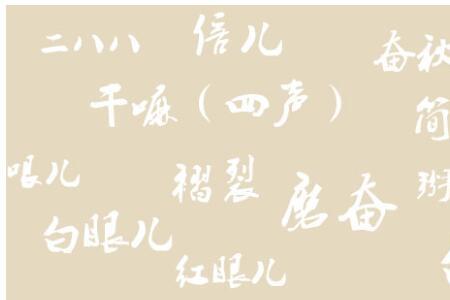 二八八 倍儿
奋秋
干嘛（四声）
简
哏儿 褶裂
掰
磨奋
白眼儿
红眼儿